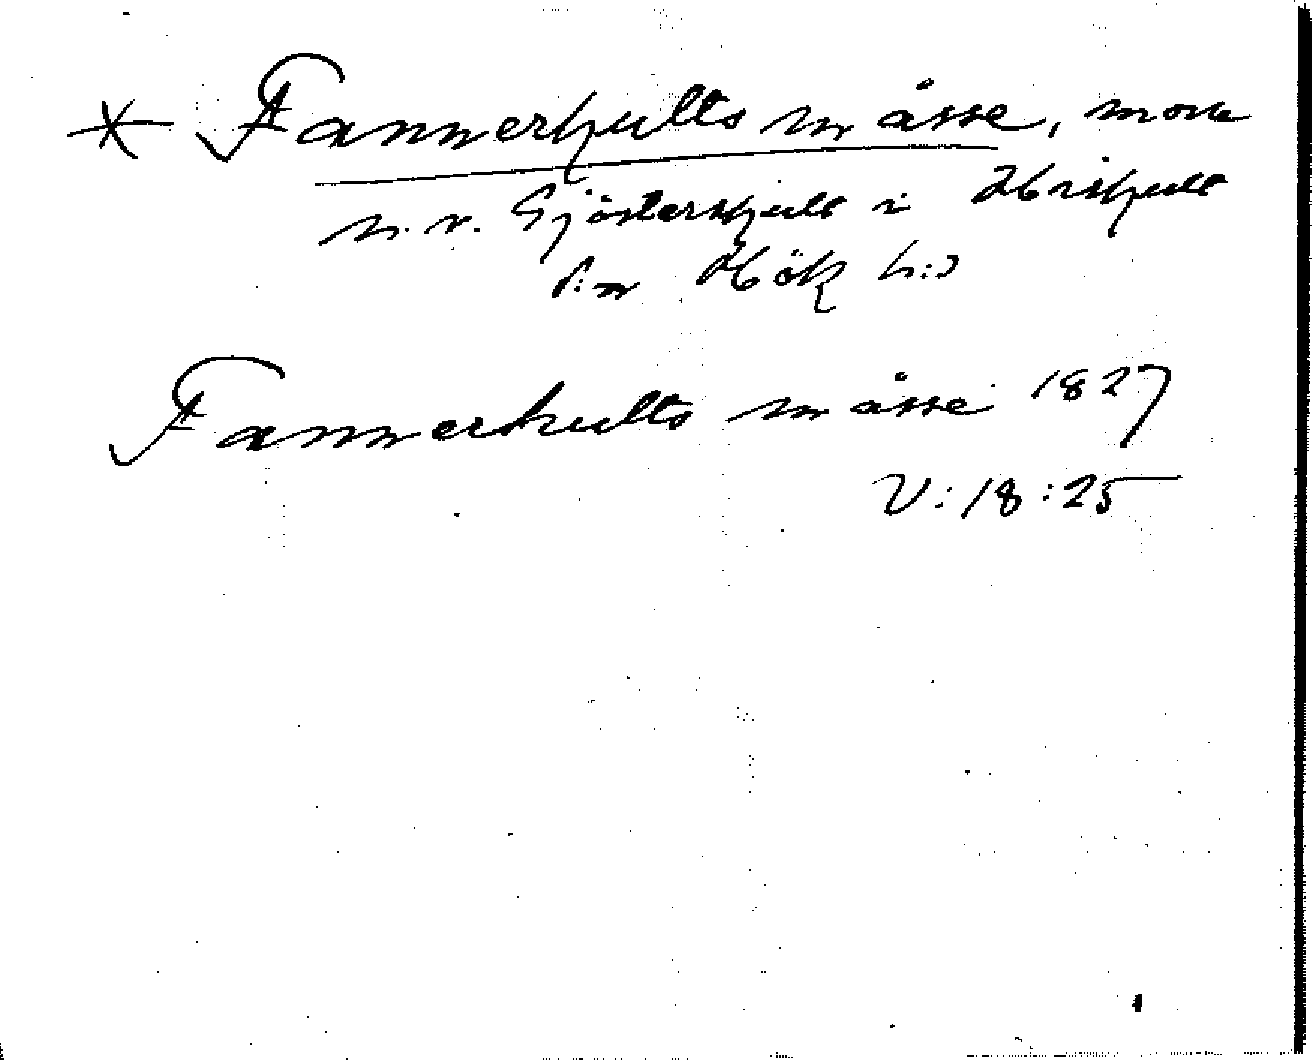 * Fannerhults måsse, mosse
n.v. Gjösterhult i Hishult
s:n Hök h:d
Fannerhults måsse 1827
V:18:25